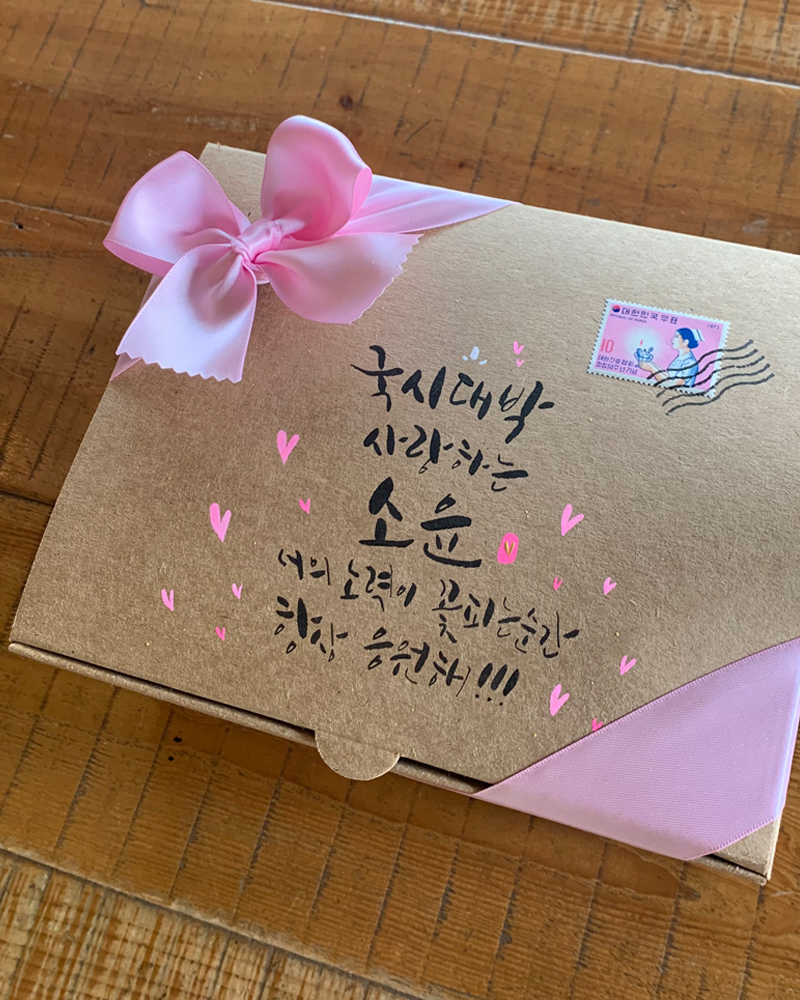 국시대박
사랑하는
소윤
너의 노력이 꽃피는순간
항상 응원해!!!
대한민국우표
REPUBLIC OF KOREA
1973
10
대한간호협회
창립50주년기념